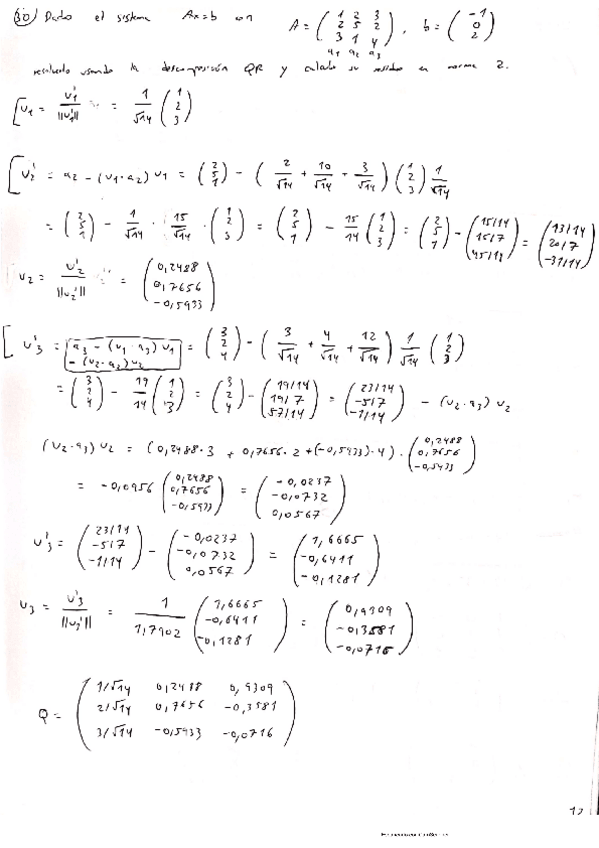 (30) Dado el sistema Ax=b con A = ( 1 2 3 / 2 5 2 / 3 1 4 ), b = ( -1 / 0 / 2 )
a1 a2 a3
resolverlo usando la descomposición QR y calcula su residuo en norma 2.
[ u1 = u'1 / ||u'1|| = 1/√14 ( 1 / 2 / 3 )
[ u'2 = a2 - (u1·a2) u1 = ( 2 / 5 / 1 ) - ( 2/√14 + 10/√14 + 3/√14 ) ( 1 / 2 / 3 ) 1/√14
= ( 2 / 5 / 1 ) - 1/√14 · 15/√14 · ( 1 / 2 / 3 ) = ( 2 / 5 / 1 ) - 15/14 ( 1 / 2 / 3 ) = ( 2 / 5 / 1 ) - ( 15/14 / 15/7 / 45/14 ) = ( 13/14 / 20/7 / -31/14 )
u2 = u'2 / ||u2'|| = ( 0,2488 / 0,7656 / -0,5933 )
[ u'3 = a3 - (u1·a3) u1 - (u2·a3) u2 = ( 3 / 2 / 4 ) - ( 3/√14 + 4/√14 + 12/√14 ) 1/√14 ( 1 / 2 / 3 )
= ( 3 / 2 / 4 ) - 19/14 ( 1 / 2 / 3 ) = ( 3 / 2 / 4 ) - ( 19/14 / 19/7 / 57/14 ) = ( 23/14 / -5/7 / -1/14 ) - (u2·a3) u2
(u2·a3) u2 = (0,2488·3 + 0,7656·2 + (-0,5933)·4) · ( 0,2488 / 0,7656 / -0,5933 )
= -0,0956 ( 0,2488 / 0,7656 / -0,5933 ) = ( -0,0237 / -0,0732 / 0,0567 )
u'3 = ( 23/14 / -5/7 / -1/14 ) - ( -0,0237 / -0,0732 / 0,0567 ) = ( 1,6665 / -0,6411 / -0,1281 )
u3 = u'3 / ||u3'|| = 1/1,7902 ( 1,6665 / -0,6411 / -0,1281 ) = ( 0,9309 / -0,3581 / -0,0716 )
Q = ( 1/√14 0,2488 0,9309 / 2/√14 0,7656 -0,3581 / 3/√14 -0,5933 -0,0716 )
12